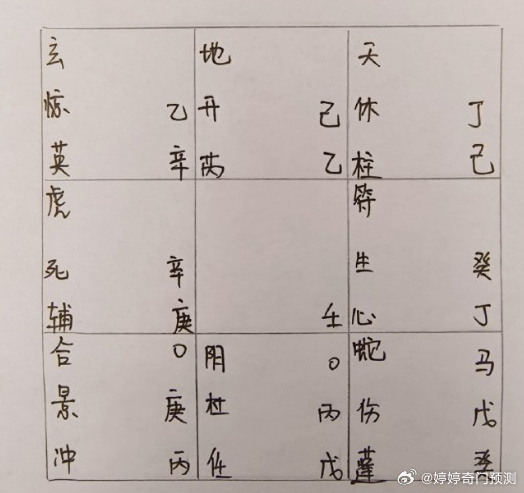 玄 地 天
惊 乙 开 己 休 丁
英 辛 芮 乙 柱 己
虎 符
死 辛 生 癸
辅 庚 壬 心 丁
合 O 阴 O 蛇 马
景 庚 杜 丙 伤 戊
冲 丙 任 戊 蓬 癸
@婷婷奇门预测